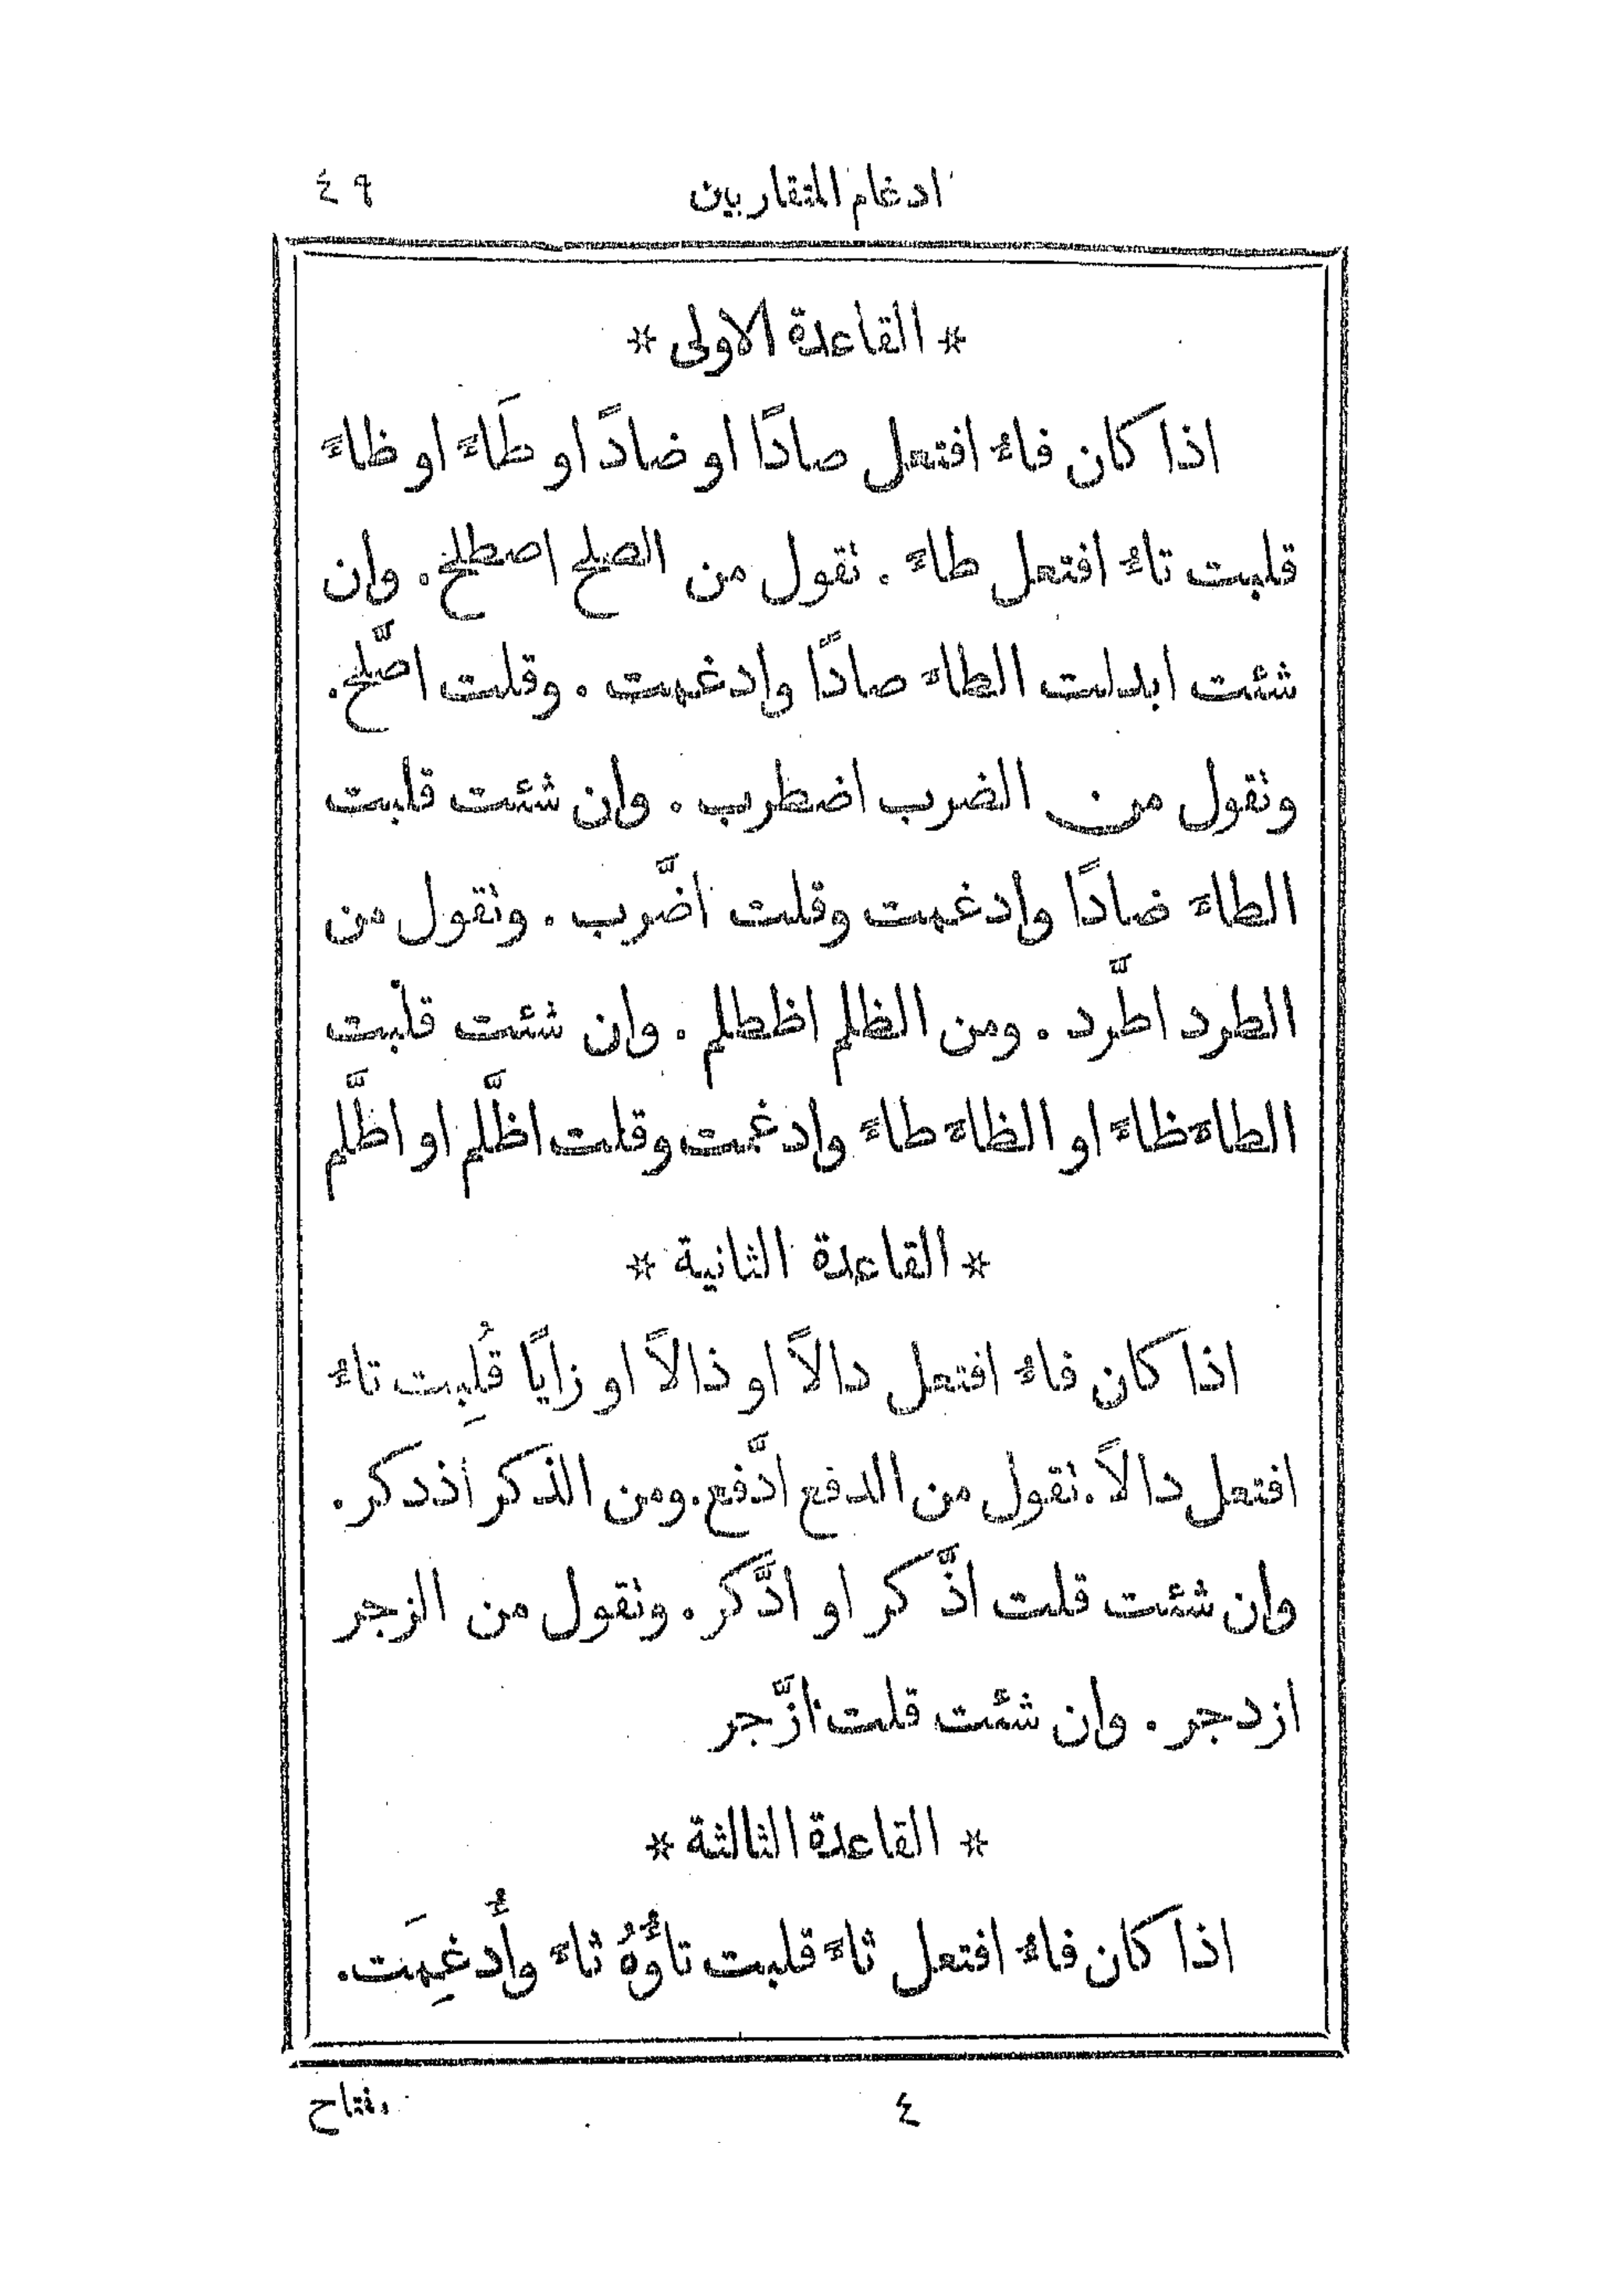 ادغام المتقاربين ٤٩
* القاعدة الاولى *
اذا كان فاءُ افتعل صادًا او ضادً او طَاءً او ظاءً
قلبت تاءُ افتعل طاءً . نقول من الصلح اصطلح . وان
شئت ابدلت الطاءَ صادًا وادغمت . وقلت اصَّلح .
ونقول من الضرب اضطرب . وان شئت قلبت
الطاءَ ضادًا وادغمت وقلت اضَّرب . ونقول من
الطرد اطَّرد . ومن الظلم اظطلم . وان شئت قلبت
الطاءَ ظاءً او الظاءَ طاءً وادغمت وقلت اظَّلم او اطَّلم
* القاعدة الثانية *
اذا كان فاءُ افتعل دالاً او ذالاً او زايًا قُلِبت تاءُ
افتعل دالاً . نقول من الدفع ادَّفع . ومن الذكر اذدكر .
وان شئت قلت اذَّكر او ادَّكر . ونقول من الزجر
ازدجر . وان شئت قلت ازَّجر
* القاعدة الثالثة *
اذا كان فاءُ افتعل ثاءً قلبت تاُؤهُ ثاءً وأُدغِمَت .
٤ مفتاح